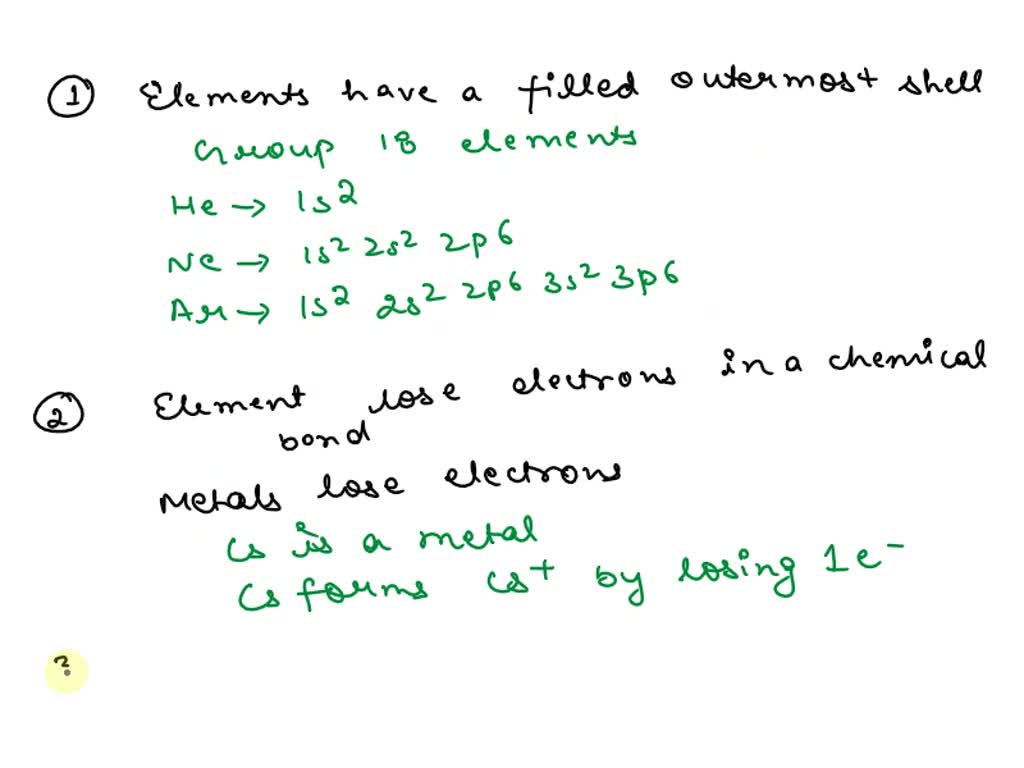 ① Elements have a filled outermost shell
Group 18 elements
He → 1s²
Ne → 1s² 2s² 2p6
Ar → 1s² 2s² 2p6 3s² 3p6
② Element lose electrons in a chemical
bond
Metals lose electrons
Cs is a metal
Cs forms Cs⁺ by losing 1e⁻